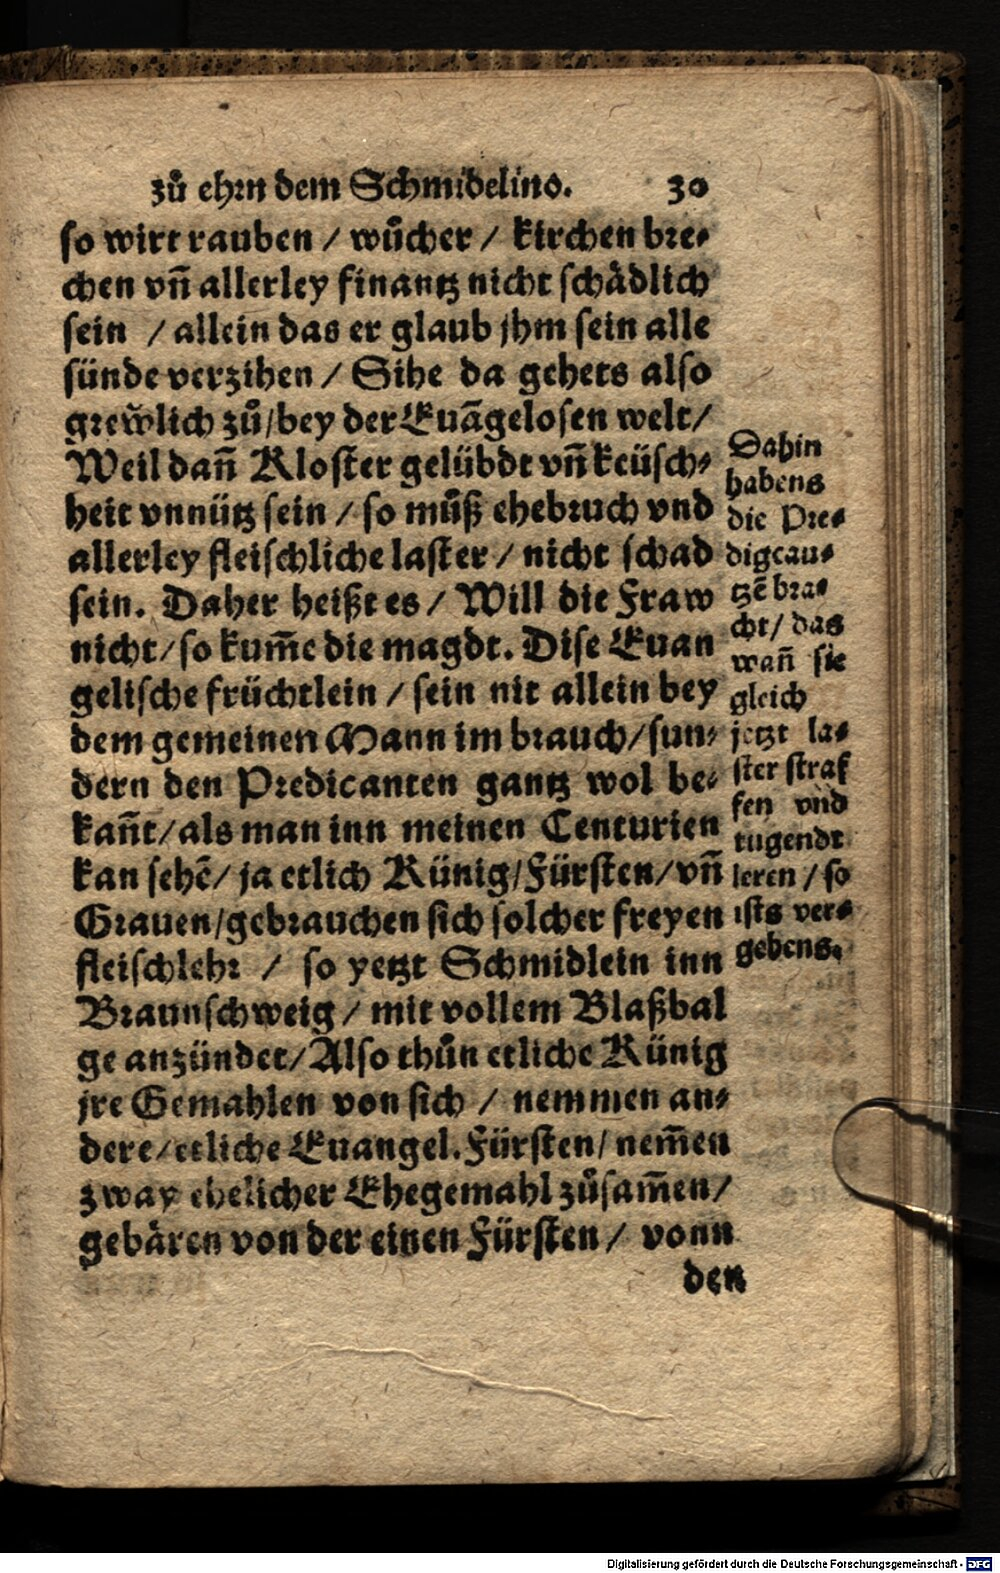 zů ehrn dem Schmidelino. 30
so wirt rauben / wůcher / kirchen bre-
chen vñ allerley finantz nicht schådlich
sein / allein das er glaub jhm sein alle
sünde verzihen / Sihe da gehets also
grewlich zů / bey der Euãgelosen welt /
Weil dañ Kloster gelübdt vñ keüsch-
heit vnnütz sein / so můß ehebruch vnd
allerley fleischliche laster / nicht schad
sein. Daher heißt es / Will die Fraw
nicht / so kum̃e die magdt. Dise Euan
gelische früchtlein / sein nit allein bey
dem gemeinen Mann im brauch / sun-
dern den Predicanten gantz wol be-
kañt / als man inn meinen Centurien
kan sehẽ / ja etlich Künig / Fürsten / vñ
Grauen / gebrauchen sich solcher freyen
fleischlehr / so yetzt Schmidlein inn
Braunschweig / mit vollem Blaßbal
ge anzündet / Also thůn etliche Künig
jre Gemahlen von sich / nemmen an-
dere / etliche Euangel. Fürsten / nem̃en
zway ehelicher Ehegemahl zůsam̃en /
gebåren von der einen Fürsten / vonn
den
Dahin
habens
die Pre-
digcau-
tzẽ bra-
cht / das
wañ sie
gleich
jetzt la-
ster straf
fen vnd
tugendt
leren / so
ists ver-
gebens.
Digitalisierung gefördert durch die Deutsche Forschungsgemeinschaft - DFG